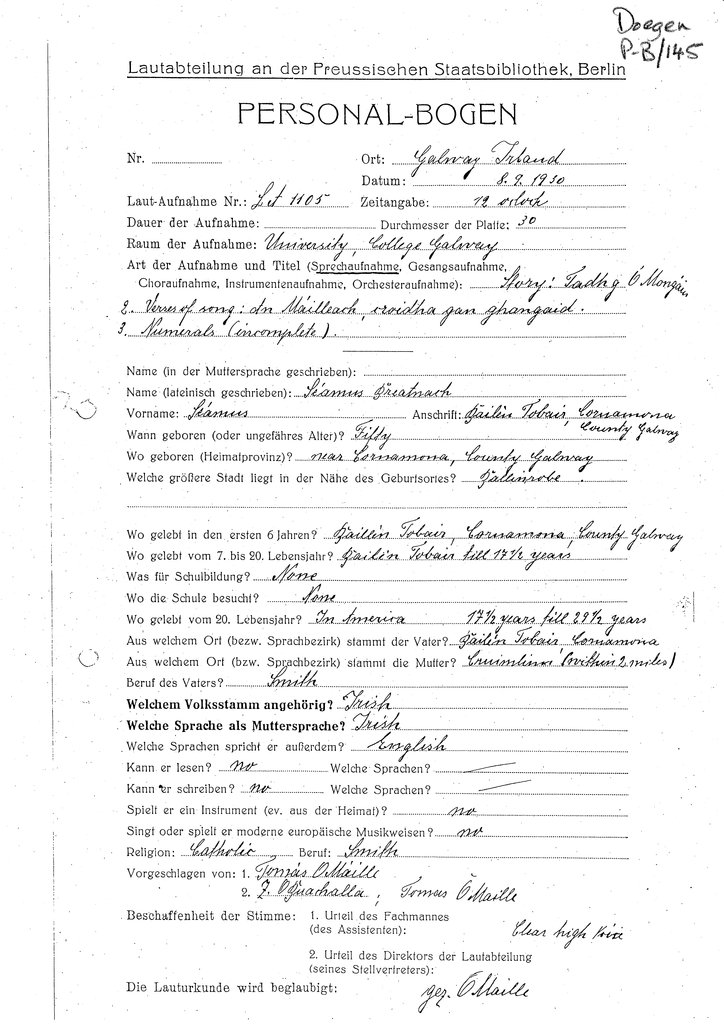 Doegen
P-B/145
Lautabteilung an der Preussischen Staatsbibliothek, Berlin
PERSONAL-BOGEN
Nr. Ort: Galway Irland
Datum: 8.9.1930
Laut-Aufnahme Nr.: LA 1105 Zeitangabe: 12 oclock
Dauer der Aufnahme: Durchmesser der Platte: 30
Raum der Aufnahme: University, College Galway
Art der Aufnahme und Titel (Sprechaufnahme, Gesangsaufnahme,
Choraufnahme, Instrumentenaufnahme, Orchesteraufnahme): Story: Tadhg Ó Mongáin
2. Verses of song: An Máilleach, croidha gan ghangaid.
3. Numerals (incomplete).
Name (in der Muttersprache geschrieben):
Name (lateinisch geschrieben): Séamus Breatnach
Vorname: Séamus Anschrift: Bailén Tobair, Cornamona
County Galway
Wann geboren (oder ungefähres Alter)? Fifty
Wo geboren (Heimatprovinz)? near Cornamona, County Galway
Welche größere Stadt liegt in der Nähe des Geburtsortes? Ballinrobe.
Wo gelebt in den ersten 6 Jahren? Bailén Tobair, Cornamona, County Galway
Wo gelebt vom 7. bis 20. Lebensjahr? Bailén Tobair till 17½ years
Was für Schulbildung? None
Wo die Schule besucht? None
Wo gelebt vom 20. Lebensjahr? In America 17½ years till 29½ years
Aus welchem Ort (bezw. Sprachbezirk) stammt der Vater? Bailén Tobair, Cornamona
Aus welchem Ort (bzw. Sprachbezirk) stammt die Mutter? (within 2 miles)
Beruf des Vaters? Smith
Welchem Volksstamm angehörig? Irish
Welche Sprache als Muttersprache? Irish
Welche Sprachen spricht er außerdem? English
Kann er lesen? no Welche Sprachen? —
Kann er schreiben? no Welche Sprachen? —
Spielt er ein Instrument (ev. aus der Heimat)? no
Singt oder spielt er moderne europäische Musikweisen? no
Religion: Catholic Beruf: Smith
Vorgeschlagen von: 1. Tomás O Maille
2. , Tomas Ó Maille
Beschaffenheit der Stimme: 1. Urteil des Fachmannes
(des Assistenten): Clear high voice
2. Urteil des Direktors der Lautabteilung
(seines Stellvertreters):
Die Lauturkunde wird beglaubigt: gez. Ó Maille